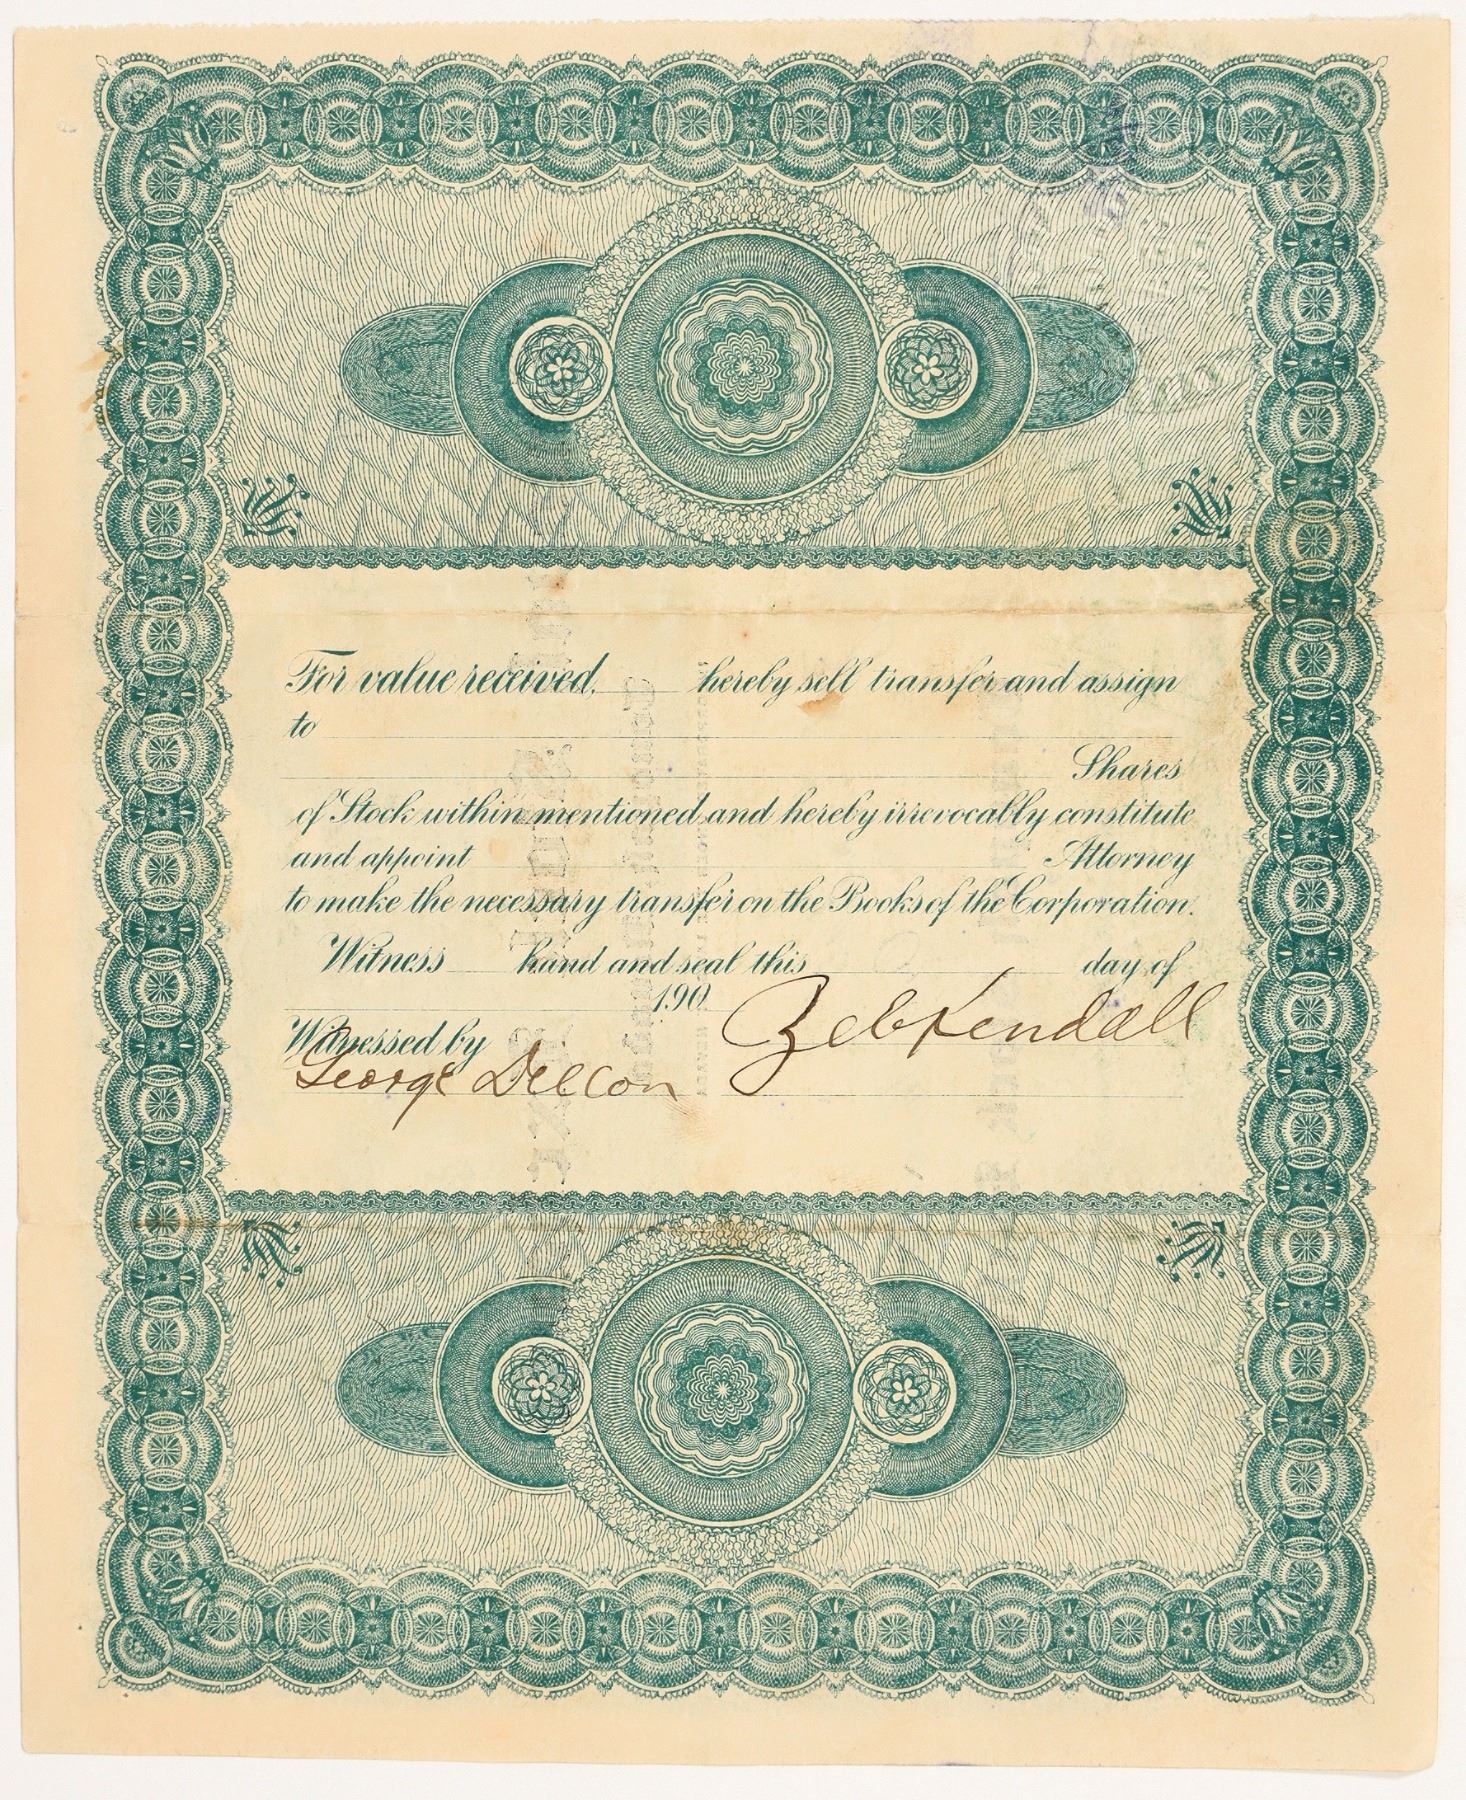 For value received, hereby sell transfer and assign
to
Shares
of Stock within mentioned and hereby irrevocably constitute
and appoint Attorney
to make the necessary transfer on the Books of the Corporation.
Witness hand and seal this day of
190
Zeb Kendall
Witnessed by
George